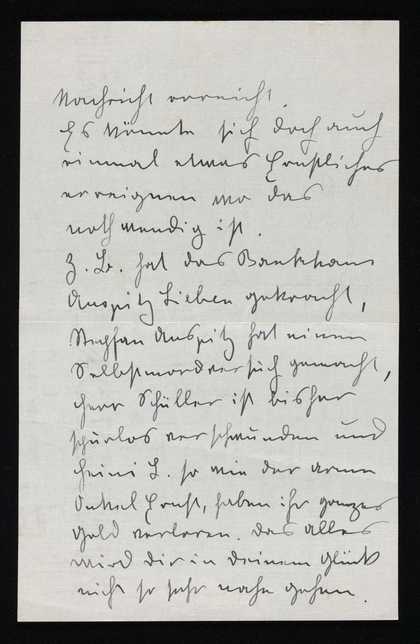 Nachricht erreicht.
Es könnte sich doch auch
einmal etwas Ernstliches
ereignen wo das
nothwendig ist.
Z. B. hat das Bankhaus
Auspitz Lieben gekracht,
Stephan Auspitz hat einen
Selbstmordversuch gemacht,
Herr Schüller ist bisher
spurlos verschwunden und
Heini L. so wie der arme
Onkel Ernst, haben ihr ganzes
Geld verloren. Das alles
wird dir in deinem Glück
nicht so sehr nahe gehen.